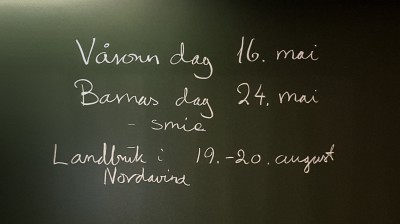 Våronn dag 16. mai
Barnas dag 24. mai
- smie
Landbruk i 19.-20. august
Nordavind